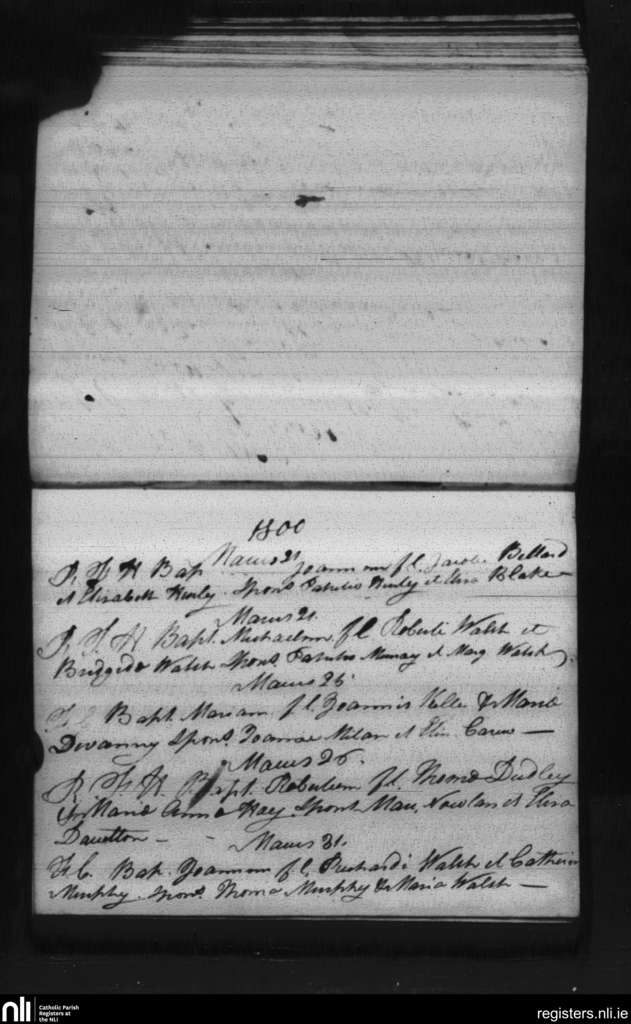 1800
Maius 21
R. F. H. Bap. Joannem f. l. Jacobi Bellard
et Elisabeth Kenly. Spons. Patritio Kenly et Elisa Blake
Maius 21.
R. F. H. Bapt. Michaelem f l Roberti Walsh et
Bridgida Walsh Spons. Patritio Murray et Mary Walsh
Maius 25.
Bapt. Mariam f l Joannis Kelle & Maria
Devanny Spons. Joanne et Carew —
Maius 26.
R. F. H. Bapt. Robertum f. l. Thoma Dudley
Maria Anna Hay. Spons. Mau. Nowlan et Elisa
Maius 31.
Bap. Joannem f l. Richardi Walsh et Catherin
Murphy. Spons. Thoma Murphy & Maria Walsh —
nli Catholic Parish
Registers at
the NLI
registers.nli.ie